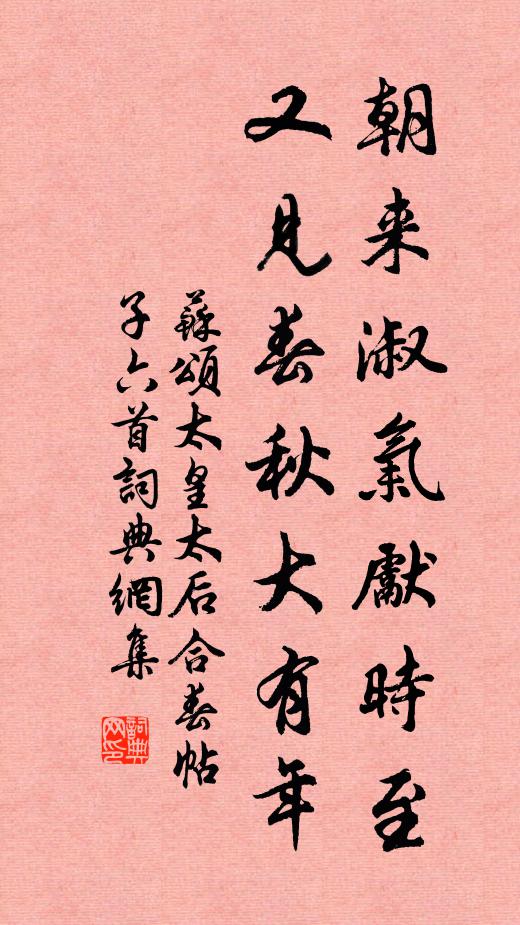 朝来淑氣獻時至
又見春秋大有年
蘇頌太皇太后合春帖
子六首詞典網集
詞典
网印